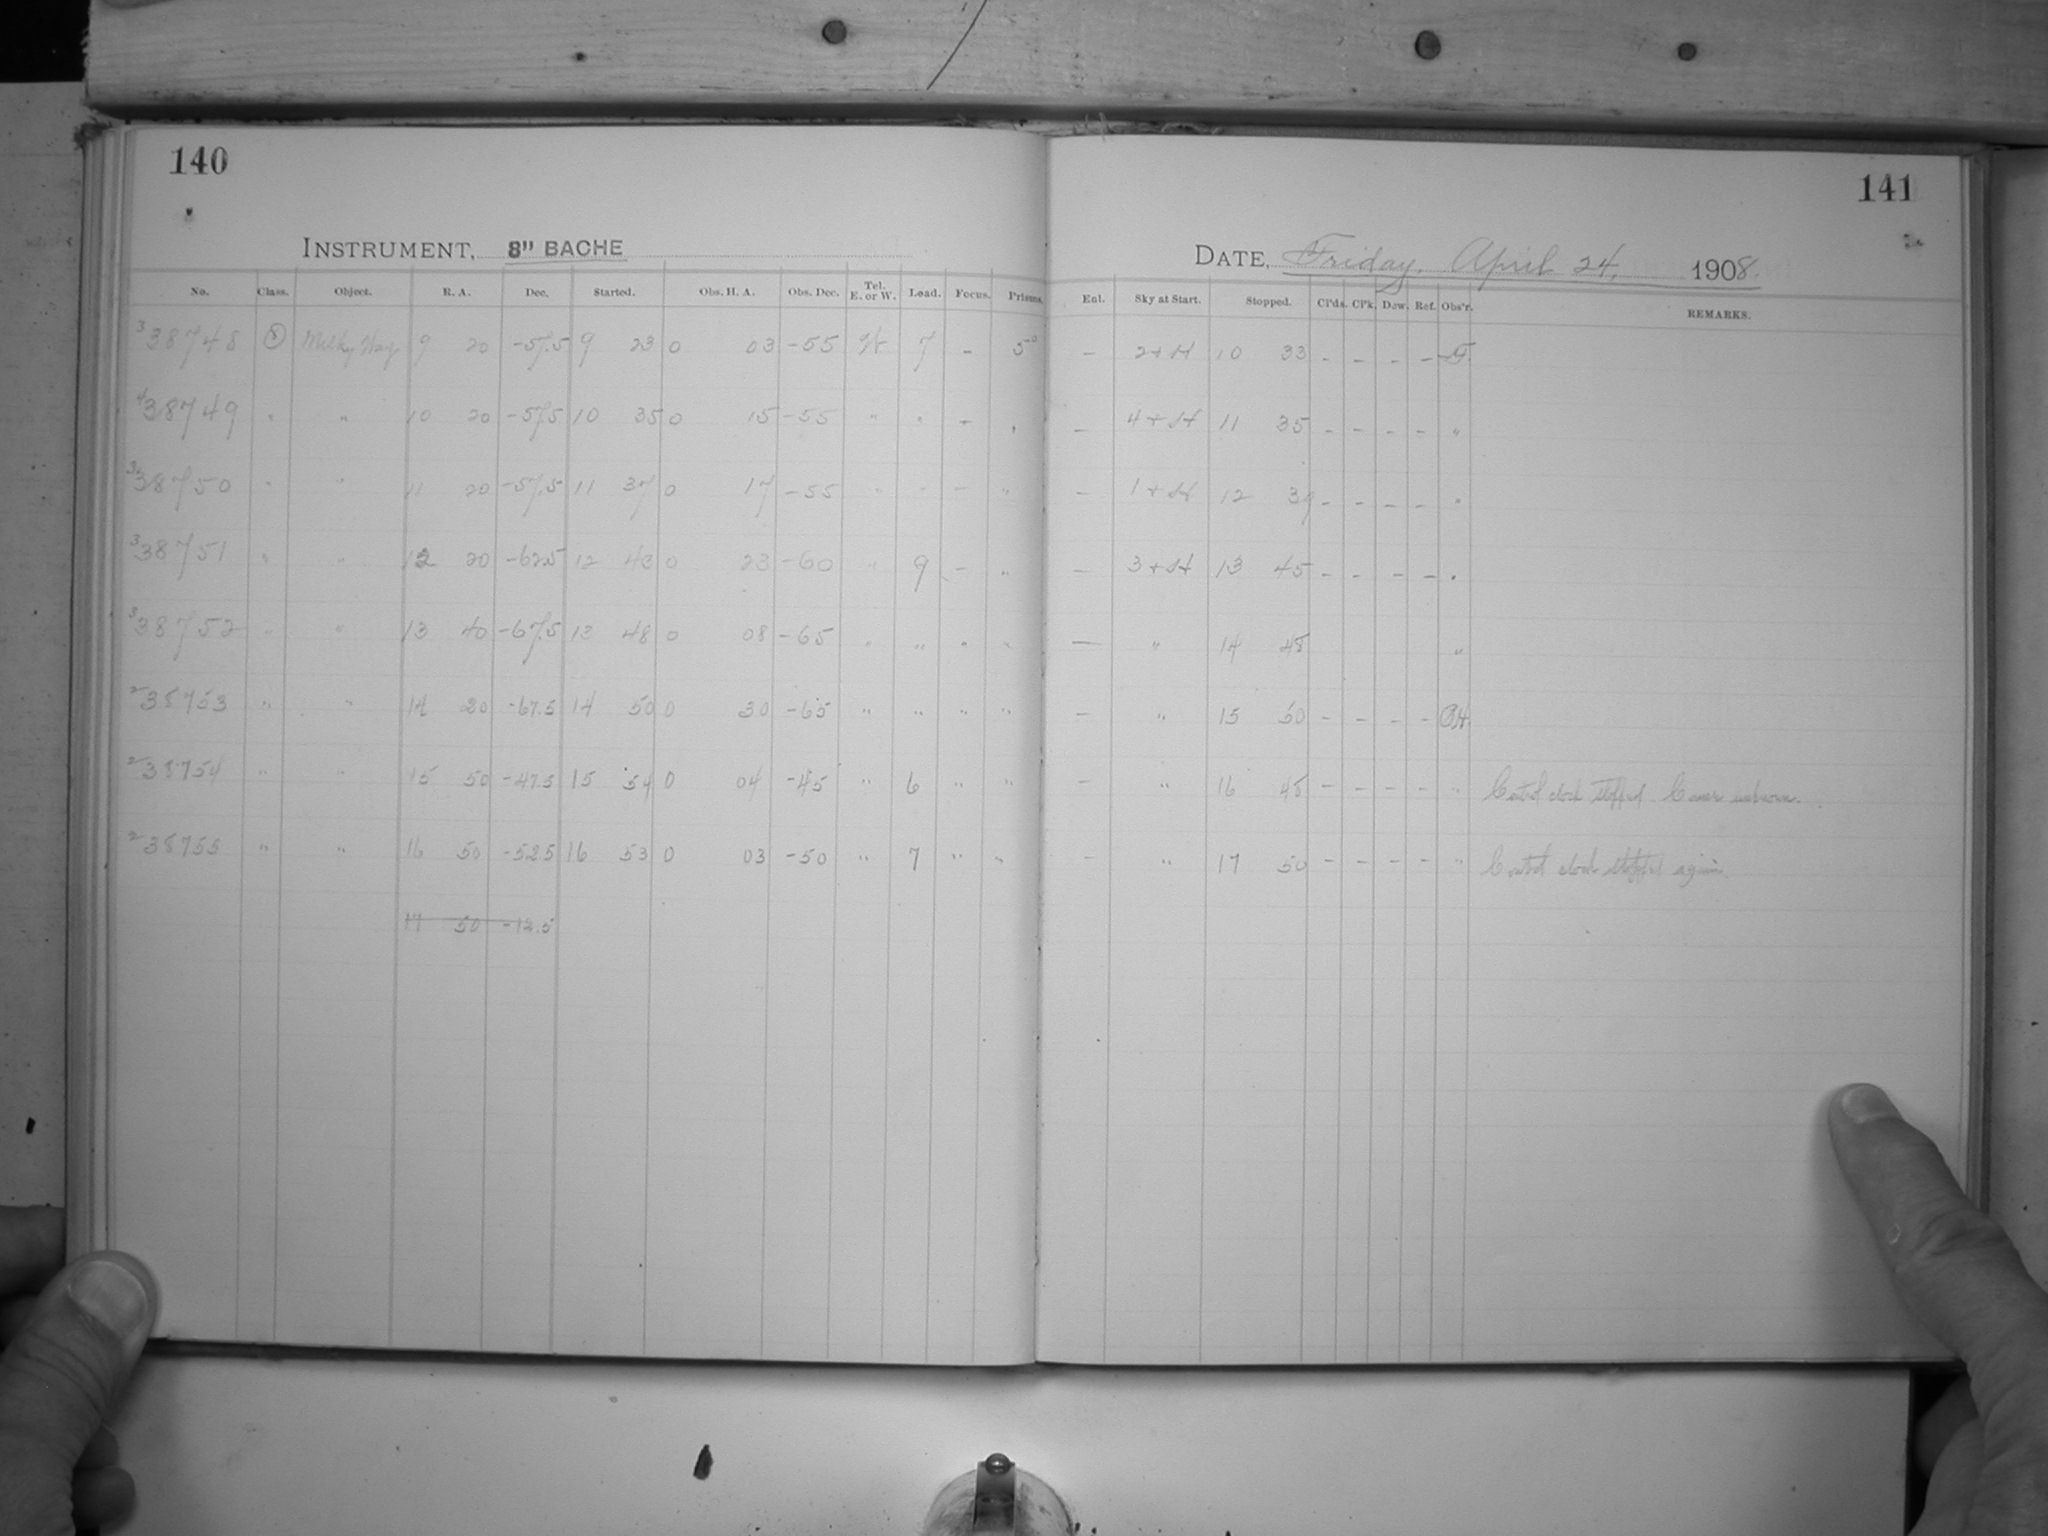 140
INSTRUMENT, 8" BACHE
No. Class. Object. R. A. Dec. Started. Obs. H. A. Obs. Dec. Tel. E. or W. Load. Focus. Prisms.
3 38748 Milky Way 9 20 -57.5 9 23 0 03 -55 W 7 - 5
4 38749 " " 10 20 -57.5 10 35 0 15 -55 " " - "
3 38750 " " 11 20 -57.5 11 37 0 17 -55 " - - "
3 38751 " " 12 20 -62.5 12 43 0 23 -60 " 9 - "
3 38752 " " 13 40 -67.5 13 48 0 08 -65 " " " "
2 38753 " " 14 20 -67.5 14 50 0 30 -65 " " " "
2 38754 " " 15 50 -47.5 15 54 0 04 -45 " 6 " "
2 38755 " " 16 50 -52.5 16 53 0 03 -50 " 7 " "
17 50 -12.5
141
DATE, Friday, April 24, 1908.
Enl. Sky at Start. Stopped. Cl'ds. Cl'k. Dew. Ref. Obs'r. REMARKS.
- 2+H 10 33 - - - -
- 4+H 11 35 - - - - "
- 1+H 12 39 - - - - "
- 3+H 13 45 - - - - "
- " 14 48 "
- " 15 50 - - - -
- " 16 48 - - - - " Control clock stopped. Cause unknown.
- " 17 50 - - - - " Control clock stopped again